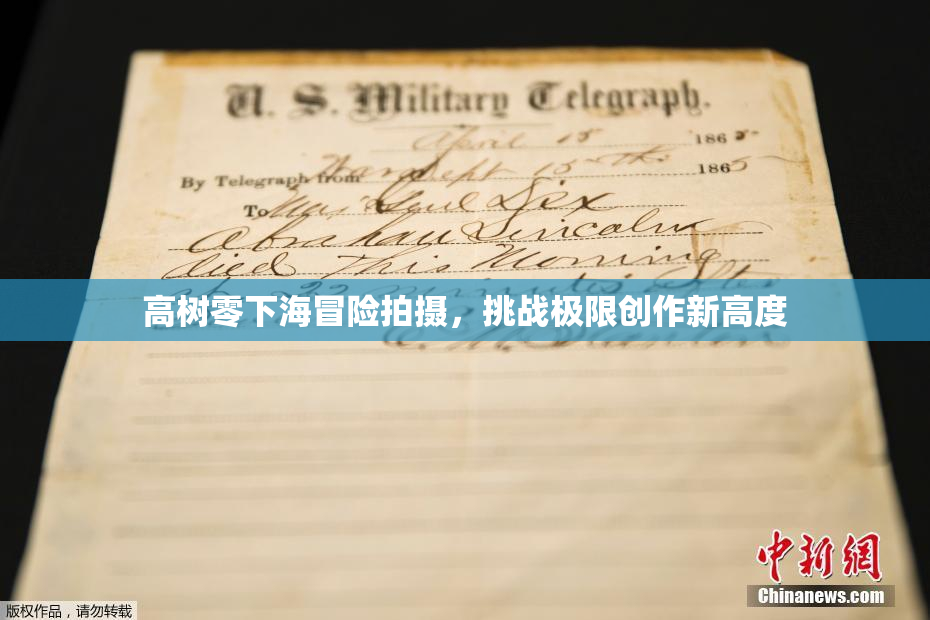 U. S. Military Telegraph.
April 15 1865
By Telegraph from Wardept 15th 1865
To Maj Genl Dix
Abraham Lincoln
died This Morning
at 22 minutes after
高树零下海冒险拍摄，挑战极限创作新高度
E. M. Stanton
中新網
Chinanews.com
版权作品，请勿转载